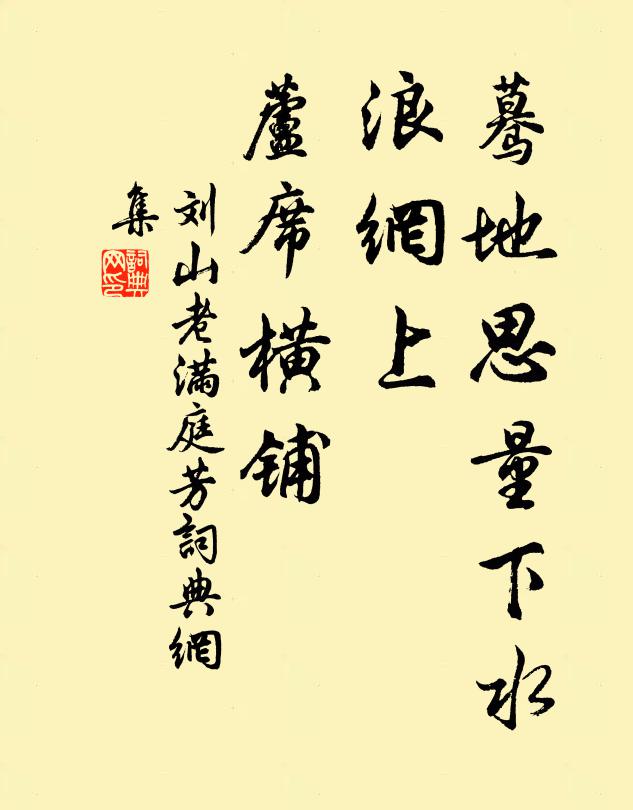 蓦地思量下水
浪網上
蘆席橫铺
刘山老满庭芳詞典網
集
詞典
网印